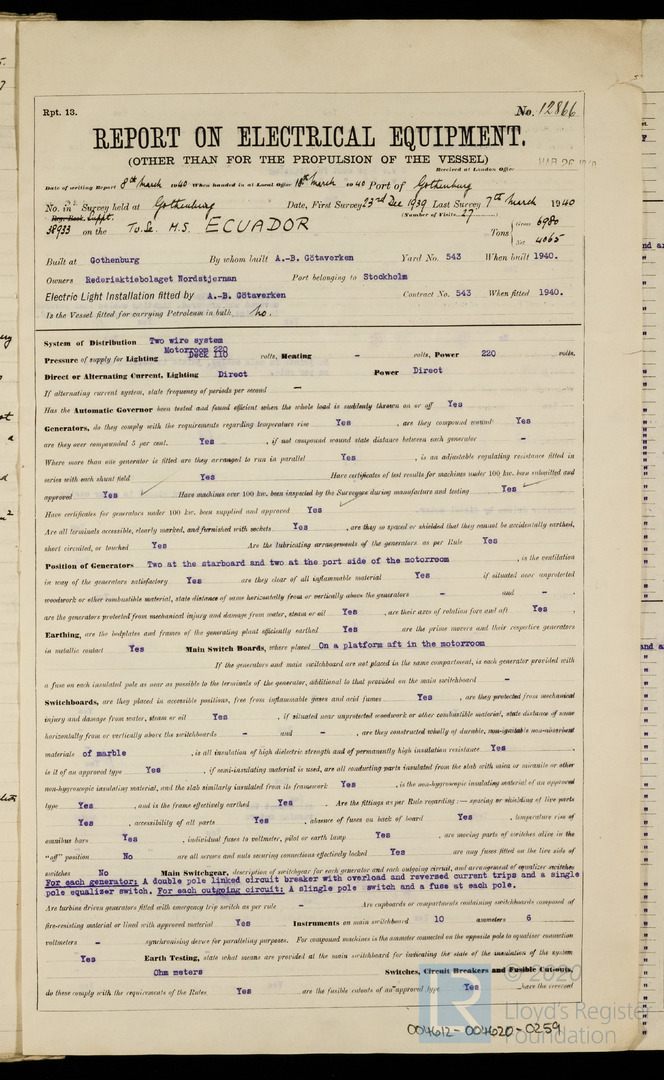 Rpt. 13.
No. 12866
REPORT ON ELECTRICAL EQUIPMENT.
(OTHER THAN FOR THE PROPULSION OF THE VESSEL)
Received at London Office MAR 26 1940
Date of writing Report 8th March 1940 When handed in at Local Office 18th March 1940 Port of Gothenburg
No. in Survey held at Gothenburg Date, First Survey 23rd Dec 1939 Last Survey 7th March 1940
Reg. Book. Supplt. (Number of Visits 27)
38933 on the Tw.Sc. M.S. ECUADOR Tons Gross 6980
Net 4065
Built at Gothenburg By whom built A.-B. Götaverken Yard No. 543 When built 1940.
Owners Rederiaktiebolaget Nordstjernan Port belonging to Stockholm
Electric Light Installation fitted by A.-B. Götaverken Contract No. 543 When fitted 1940.
Is the Vessel fitted for carrying Petroleum in bulk No.
System of Distribution Two wire system
Pressure of supply for Lighting Motorroom 220 Deck 110 volts, Heating - volts, Power 220 volts.
Direct or Alternating Current, Lighting Direct Power Direct
If alternating current system, state frequency of periods per second -
Has the Automatic Governor been tested and found efficient when the whole load is suddenly thrown on or off Yes
Generators, do they comply with the requirements regarding temperature rise Yes, are they compound wound Yes
are they over compounded 5 per cent. Yes, if not compound wound state distance between each generator -
Where more than one generator is fitted are they arranged to run in parallel Yes, is an adjustable regulating resistance fitted in
series with each shunt field Yes Have certificates of test results for machines under 100 kw. been submitted and
approved Yes Have machines over 100 kw. been inspected by the Surveyors during manufacture and testing Yes
Have certificates for generators under 100 kw. been supplied and approved Yes
Are all terminals accessible, clearly marked, and furnished with sockets Yes, are they so spaced or shielded that they cannot be accidentally earthed,
short circuited, or touched Yes Are the lubricating arrangements of the generators as per Rule Yes
Position of Generators Two at the starboard and two at the port side of the motorroom, is the ventilation
in way of the generators satisfactory Yes are they clear of all inflammable material Yes if situated near unprotected
woodwork or other combustible material, state distance of same horizontally from or vertically above the generators - and -,
are the generators protected from mechanical injury and damage from water, steam or oil Yes, are their axes of rotation fore and aft Yes,
Earthing, are the bedplates and frames of the generating plant efficiently earthed Yes are the prime movers and their respective generators
in metallic contact Yes Main Switch Boards, where placed On a platform aft in the motorroom
If the generators and main switchboard are not placed in the same compartment, is each generator provided with
a fuse on each insulated pole as near as possible to the terminals of the generator, additional to that provided on the main switchboard -
Switchboards, are they placed in accessible positions, free from inflammable gases and acid fumes Yes, are they protected from mechanical
injury and damage from water, steam or oil Yes, if situated near unprotected woodwork or other combustible material, state distance of same
horizontally from or vertically above the switchboards - and -, are they constructed wholly of durable, non-ignitable non-absorbent
materials of marble, is all insulation of high dielectric strength and of permanently high insulation resistance Yes,
is it of an approved type Yes, if semi-insulating material is used, are all conducting parts insulated from the slab with mica or micanite or other
non-hygroscopic insulating material, and the slab similarly insulated from its framework Yes, is the non-hygroscopic insulating material of an approved
type Yes, and is the frame effectively earthed Yes. Are the fittings as per Rule regarding:— spacing or shielding of live parts
Yes, accessibility of all parts Yes, absence of fuses on back of board Yes, temperature rise of
omnibus bars Yes, individual fuses to voltmeter, pilot or earth lamp Yes, are moving parts of switches alive in the
"off" position No are all screws and nuts securing connections effectively locked Yes are any fuses fitted on the live side of
switches No Main Switchgear, description of switchgear for each generator and each outgoing circuit, and arrangement of equalizer switches
For each generator: A double pole linked circuit breaker with overload and reversed current trips and a single
pole equalizer switch. For each outgoing circuit: A slingle pole switch and a fuse at each pole.
Are turbine driven generators fitted with emergency trip switch as per rule - Are cupboards or compartments containing switchboards composed of
fire-resisting material or lined with approved material Yes Instruments on main switchboard 10 ammeters 6
voltmeters - synchronising device for paralleling purposes. For compound machines is the ammeter connected on the opposite pole to equaliser connection
Yes Earth Testing, state what means are provided at the main switchboard for indicating the state of the insulation of the system
Ohm meters Switches, Circuit Breakers and Fusible Cut-outs,
do these comply with the requirements of the Rules Yes are the fusible cutouts of an approved type Yes have the reversed
© 2020
Lloyd's Register
Foundation
004612-004620-0259